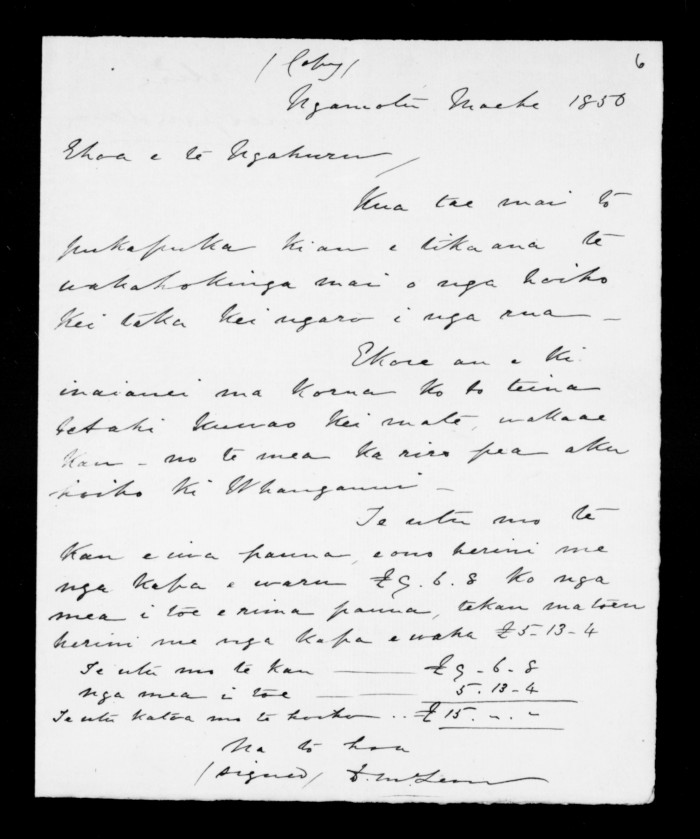 (Copy)
6
Ngamotu Maehe 1850
Ehoa e te Ngahuru/
Kua tae mai to
pukapuka kiau e tika ana te
wakahokinga mai o nga hoiho
kei taka kei ngaro i nga rua –
Ekore au e ki
inaianei ma korua ko to teina
tetahi kuwao kei mate, wakaae
kau – no te mea ka riro pea aku
hoiho ki Whanganui –
Te utu mo te
kau e iwa pauna, eono herini me
nga kapa e waru £9.6.8 ko nga
mea i toe e rima pauna, tekau matoru
herini me nga kapa ewaha £5-13-4
Te utu mo te kau —— £9-6-8
nga mea i toe —— 5.13-4
Te utu katoa mo te hoiho .. £15. „ . „
Na to hoa
(signed) D. McLean